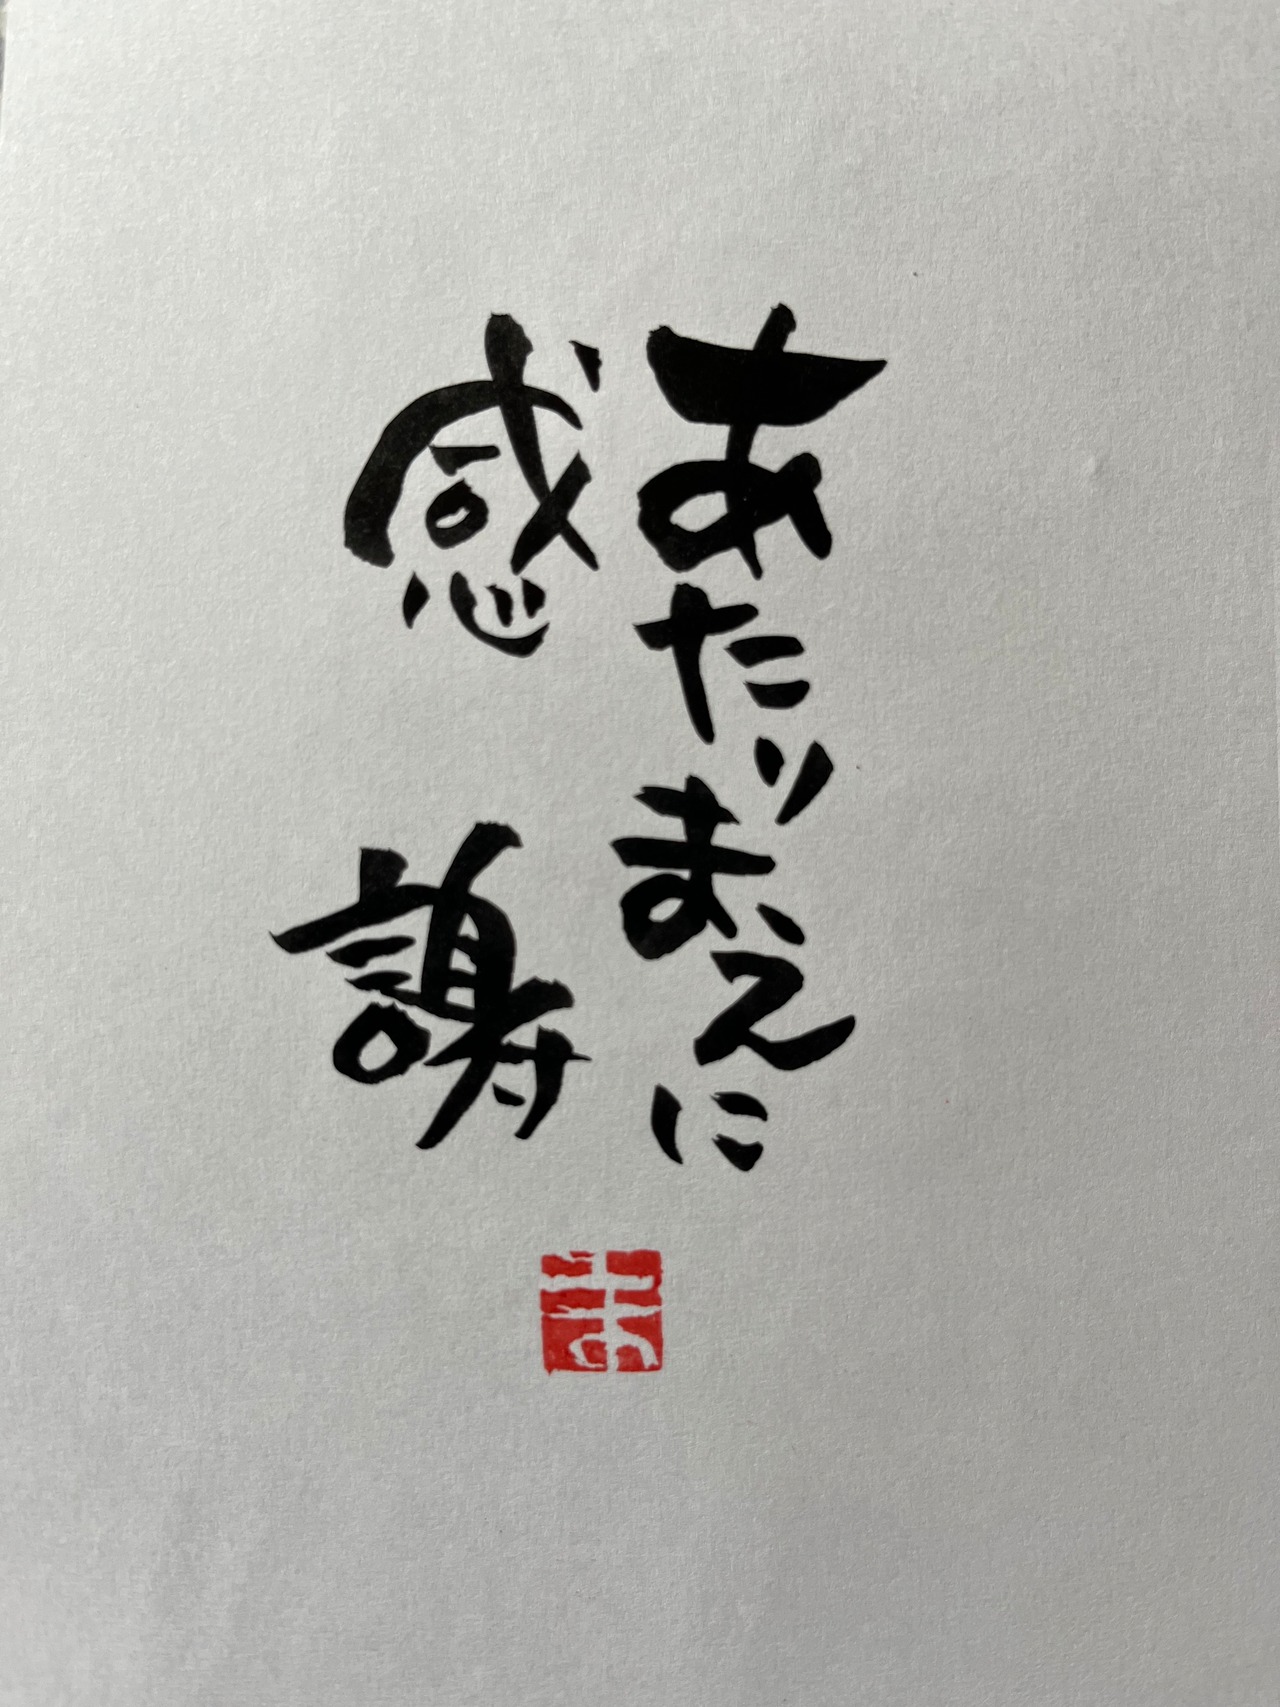 あたりまえに
感謝